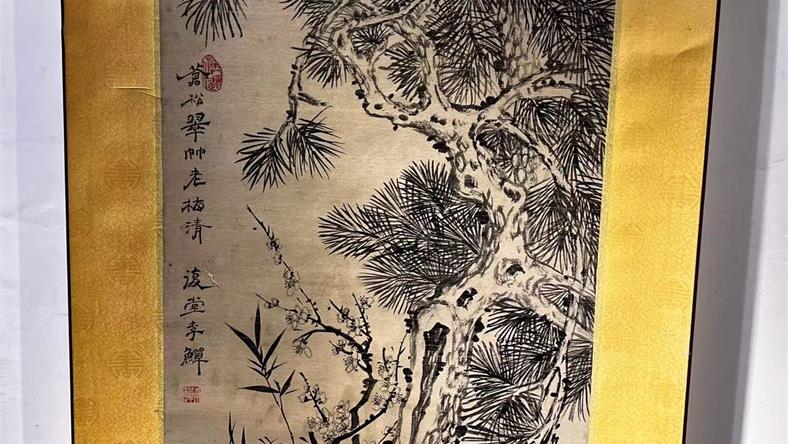 蒼松翠竹老梅清　復堂李鱓